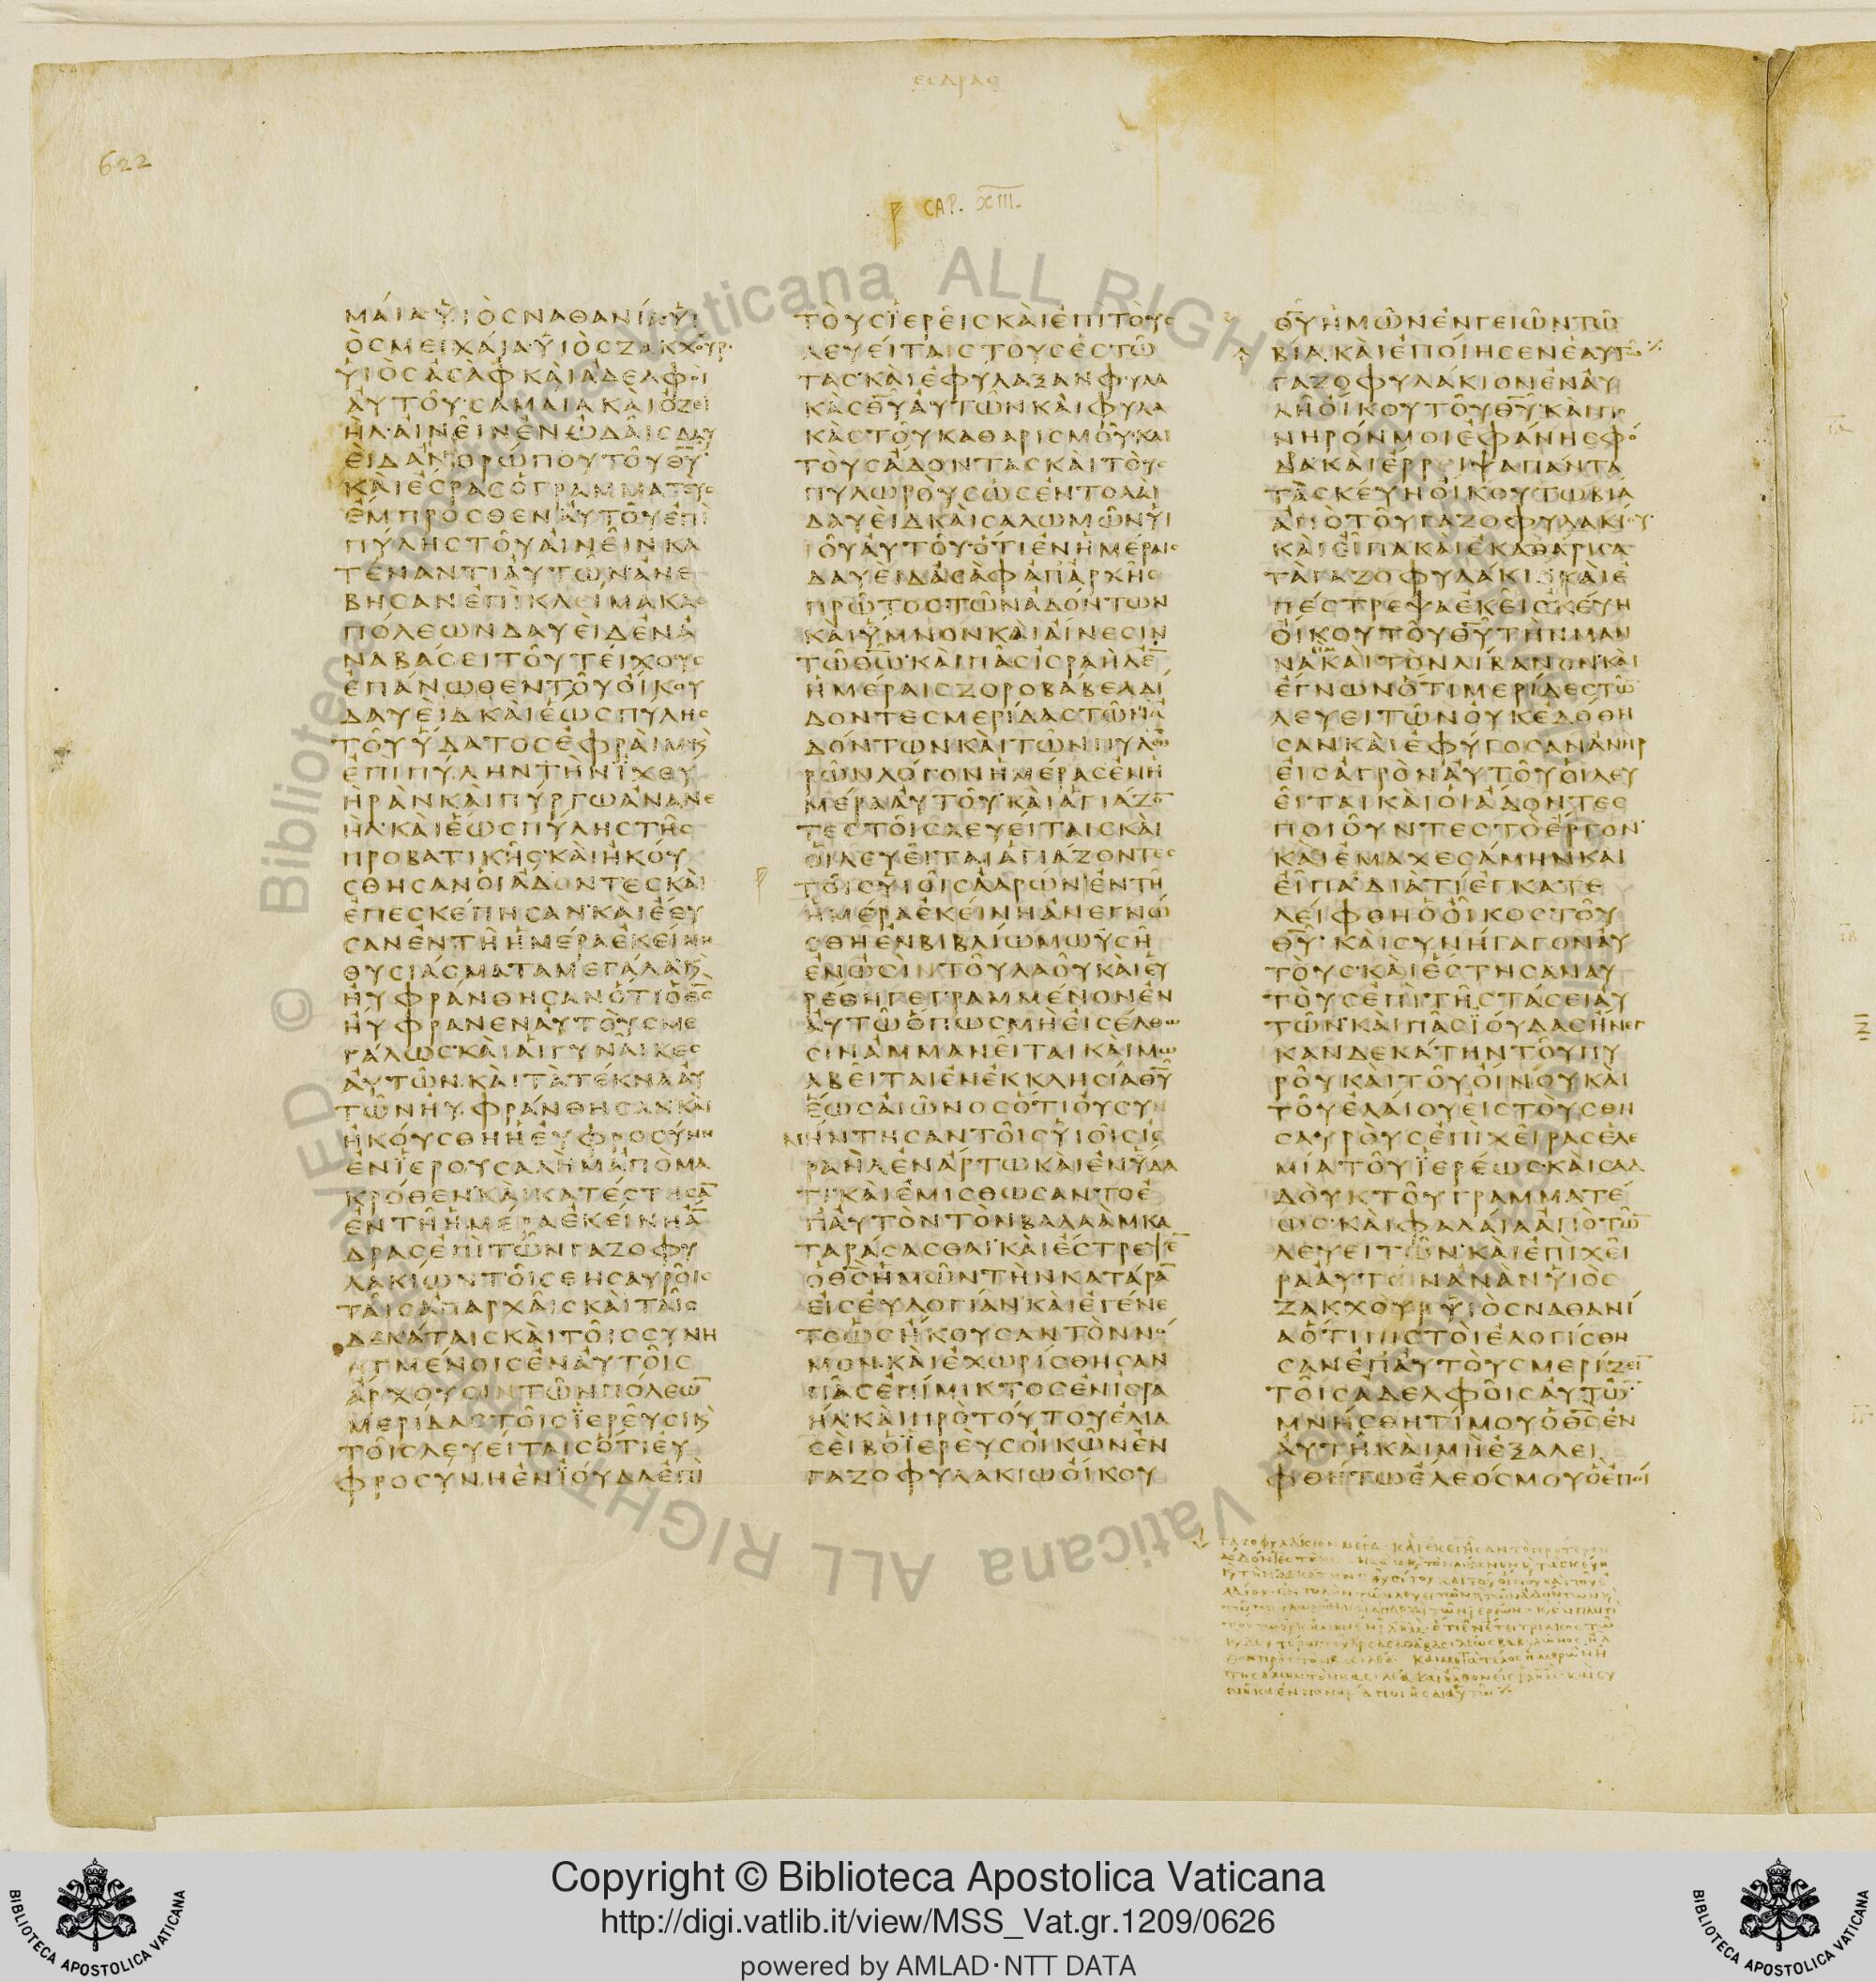 εσδρας
622
CAP. XIII.
ΜΑΙΑΥΙΟΣΝΑΘΑΝΙΑΥΙ
ΟΣΜΕΙΧΑΙΑΥΙΟΣΖΑΚΧΟΥΡ
ΥΙΟΣΑΣΑΦΚΑΙΑΔΕΛΦΟΙ
ΑΥΤΟΥ·ΣΑΜΑΙΑΚΑΙΟΖΕΙ
ΗΛ·ΑΙΝΕΙΝΕΝΩΔΑΙΣΔΑΥ
ΕΙΔΑΝΘΡΩΠΟΥΤΟΥΘΥ·
ΚΑΙΕΣΡΑΣΟΓΡΑΜΜΑΤΕΥΣ
ΕΜΠΡΟΣΘΕΝΑΥΤΟΥΕΠΙ
ΠΥΛΗΣΤΟΥΑΙΝΕΙΝΚΑ
ΤΕΝΑΝΤΙΑΥΤΩΝΑΝΕ
ΒΗΣΑΝΕΠΙΚΛΕΙΜΑΚΑΣ
ΠΟΛΕΩΝΔΑΥΕΙΔΕΝΑ
ΝΑΒΑΣΕΙΤΟΥΤΕΙΧΟΥΣ
ΕΠΑΝΩΘΕΝΤΟΥΟΙΚΟΥ
ΔΑΥΕΙΔΚΑΙΕΩΣΠΥΛΗΣ
ΤΟΥΥΔΑΤΟΣΕΦΡΑΙΜϗ
ΕΠΙΠΥΛΗΝΤΗΝΙΧΘΥ
ΗΡΑΝΚΑΙΠΥΡΓΩΑΝΑΝΕ
ΗΛ·ΚΑΙΕΩΣΠΥΛΗΣΤΗΣ
ΠΡΟΒΑΤΙΚΗΣ·ΚΑΙΗΚΟΥ
ΣΘΗΣΑΝΟΙΑΔΟΝΤΕΣΚΑΙ
ΕΠΕΣΚΕΠΗΣΑΝ·ΚΑΙΕΘΥ
ΣΑΝΕΝΤΗΗΜΕΡΑΕΚΕΙΝΗ
ΘΥΣΙΑΣΜΑΤΑΜΕΓΑΛΑϗ
ΗΥΦΡΑΝΘΗΣΑΝΟΤΙΟΘΣ
ΗΥΦΡΑΝΕΝΑΥΤΟΥΣΜΕ
ΓΑΛΩΣ·ΚΑΙΑΙΓΥΝΑΙΚΕΣ
ΑΥΤΩΝ·ΚΑΙΤΑΤΕΚΝΑΑΥ
ΤΩΝΗΥΦΡΑΝΘΗΣΑΝΚΑΙ
ΗΚΟΥΣΘΗΗΕΥΦΡΟΣΥΝΗ
ΕΝΙΕΡΟΥΣΑΛΗΜΑΠΟΜΑ
ΚΡΟΘΕΝ·ΚΑΙΚΑΤΕΣΤΗΣΑ
ΕΝΤΗΗΜΕΡΑΕΚΕΙΝΗΑ
ΔΡΑΣΕΠΙΤΩΝΓΑΖΟΦΥ
ΛΑΚΙΩΝΤΟΙΣΘΗΣΑΥΡΟΙΣ
ΤΑΙΣΑΠΑΡΧΑΙΣΚΑΙΤΑΙΣ
ΔΕΚΑΤΑΙΣΚΑΙΤΟΙΣΣΥΝΗ
ΓΜΕΝΟΙΣΕΝΑΥΤΟΙΣ
ΑΡΧΟΥΣΙΝΤΩΝΠΟΛΕΩ
ΜΕΡΙΔΑΣΤΟΙΣΙΕΡΕΥΣΙϗ
ΤΟΙΣΛΕΥΕΙΤΑΙΣΟΤΙΕΥ
ΦΡΟΣΥΝΗΕΝΙΟΥΔΑΕΠΙ
ΤΟΥΣΙΕΡΕΙΣΚΑΙΕΠΙΤΟΥΣ
ΛΕΥΕΙΤΑΙΣΤΟΥΣΕΣΤΩ
ΤΑΣ·ΚΑΙΕΦΥΛΑΞΑΝΦΥΛΑ
ΚΑΣΘΥΑΥΤΩΝΚΑΙΦΥΛΑ
ΚΑΣΤΟΥΚΑΘΑΡΙΣΜΟΥ·ΚΑΙ
ΤΟΥΣΑΔΟΝΤΑΣΚΑΙΤΟΥΣ
ΠΥΛΩΡΟΥΣΩΣΕΝΤΟΛΑΙ
ΔΑΥΕΙΔΚΑΙΣΑΛΩΜΩΝΥΙ
ΟΥΑΥΤΟΥ·ΟΤΙΕΝΗΜΕΡΑΙΣ
ΔΑΥΕΙΔΑΣΑΦΑΠΑΡΧΗΣ
ΠΡΩΤΟΣΤΩΝΑΔΟΝΤΩΝ
ΚΑΙΥΜΝΟΝΚΑΙΑΙΝΕΣΙΝ
ΤΩΘΩ·ΚΑΙΠΑΣΙΣΡΑΗΛΕ
ΗΜΕΡΑΙΣΖΟΡΟΒΑΒΕΛΑΙ
ΔΟΝΤΕΣΜΕΡΙΔΑΣΤΩΝΑ
ΔΟΝΤΩΝΚΑΙΤΩΝΠΥΛΩ
ΡΩΝΛΟΓΟΝΗΜΕΡΑΣΕΝΗ
ΜΕΡΑΑΥΤΟΥ·ΚΑΙΑΓΙΑΖΟ
ΤΕΣΤΟΙΣΛΕΥΕΙΤΑΙΣΚΑΙ
ΟΙΛΕΥΕΙΤΑΙΑΓΙΑΖΟΝΤΕΣ
ΤΟΙΣΥΙΟΙΣΑΑΡΩΝΕΝΤΗ
ΗΜΕΡΑΕΚΕΙΝΗΑΝΕΓΝΩ
ΣΘΗΕΝΒΙΒΛΙΩΜΩΥΣΗ
ΕΝΩΣΙΝΤΟΥΛΑΟΥΚΑΙΕΥ
ΡΕΘΗΓΕΓΡΑΜΜΕΝΟΝΕΝ
ΑΥΤΩΟΠΩΣΜΗΕΙΣΕΛΘΩ
ΣΙΝΑΜΜΑΝΕΙΤΑΙΚΑΙΜΩ
ΑΒΕΙΤΑΙΕΝΕΚΚΛΗΣΙΑΘΥ
ΕΩΣΑΙΩΝΟΣΟΤΙΟΥΣΥ
ΝΗΝΤΗΣΑΝΤΟΙΣΥΙΟΙΣΙΣ
ΡΑΗΛΕΝΑΡΤΩΚΑΙΕΝΥΔΑ
ΤΙ·ΚΑΙΕΜΙΣΘΩΣΑΝΤΟΕ
ΠΑΥΤΟΝΤΟΝΒΑΛΑΑΜΚΑ
ΤΑΡΑΣΑΣΘΑΙ·ΚΑΙΕΣΤΡΕΨΕ
ΟΘΣΗΜΩΝΤΗΝΚΑΤΑΡΑ
ΕΙΣΕΥΛΟΓΙΑΝ·ΚΑΙΕΓΕΝΕ
ΤΟΩΣΗΚΟΥΣΑΝΤΟΝΝΟ
ΜΟΝ·ΚΑΙΕΧΩΡΙΣΘΗΣΑΝ
ΠΑΣΕΠΙΜΙΚΤΟΣΕΝΙΣΡΑ
ΗΛ·ΚΑΙΠΡΟΤΟΥΤΟΥΕΛΙΑ
ΣΕΙΒΟΙΕΡΕΥΣΟΙΚΩΝΕΝ
ΓΑΖΟΦΥΛΑΚΙΩΟΙΚΟΥ
ΘΥΗΜΩΝΕΝΓΕΙΩΝΤΩ
ΒΙΑ·ΚΑΙΕΠΟΙΗΣΕΝΕΑΥΤΩ
ΓΑΖΟΦΥΛΑΚΙΟΝΕΝΑΥ
ΛΗΟΙΚΟΥΤΟΥΘΥ·ΚΑΙΠΟ
ΝΗΡΟΝΜΟΙΕΦΑΝΗΣΦΟ
ΔΑΚΑΙΕΡΡΙΨΑΠΑΝΤΑ
ΤΑΣΚΕΥΗΟΙΚΟΥΤΩΒΙΑ
ΑΠΟΤΟΥΓΑΖΟΦΥΛΑΚΙΟΥ·
ΚΑΙΕΙΠΑΚΑΙΕΚΑΘΑΡΙΣΑ
ΤΑΓΑΖΟΦΥΛΑΚΙΑΚΑΙΕ
ΠΕΣΤΡΕΨΑΕΚΕΙΣΚΕΥΗ
ΟΙΚΟΥΤΟΥΘΥΤΗΝΜΑΝ
ΝΑΚΑΙΤΟΝΛΙΒΑΝΟΝ·ΚΑΙ
ΕΓΝΩΝΟΤΙΜΕΡΙΔΕΣΤΩ
ΛΕΥΕΙΤΩΝΟΥΚΕΔΟΘΗ
ΣΑΝ·ΚΑΙΕΦΥΓΟΣΑΝΑΝΗΡ
ΕΙΣΑΓΡΟΝΑΥΤΟΥΟΙΛΕΥ
ΕΙΤΑΙΚΑΙΟΙΑΔΟΝΤΕΣ
ΠΟΙΟΥΝΤΕΣΤΟΕΡΓΟΝ·
ΚΑΙΕΜΑΧΕΣΑΜΗΝΚΑΙ
ΕΙΠΑΔΙΑΤΙΕΓΚΑΤΕ
ΛΕΙΦΘΗΟΟΙΚΟΣΤΟΥ
ΘΥ·ΚΑΙΣΥΝΗΓΑΓΟΝΑΥ
ΤΟΥΣ·ΚΑΙΕΣΤΗΣΑΝΑΥ
ΤΟΥΣΕΠΙΤΗΣΤΑΣΕΙΑΥ
ΤΩΝ·ΚΑΙΠΑΣΙΟΥΔΑΣΗΝΕΓ
ΚΑΝΔΕΚΑΤΗΝΤΟΥΠΥ
ΡΟΥΚΑΙΤΟΥΟΙΝΟΥΚΑΙ
ΤΟΥΕΛΑΙΟΥΕΙΣΤΟΥΣΘΗ
ΣΑΥΡΟΥΣΕΠΙΧΕΙΡΑΣΕΛΕ
ΜΙΑΤΟΥΙΕΡΕΩΣ·ΚΑΙΣΑΔ
ΔΟΥΚΤΟΥΓΡΑΜΜΑΤΕ
ΩΣ·ΚΑΙΦΑΛΑΙΑΑΠΟΤΩ
ΛΕΥΕΙΤΩΝ·ΚΑΙΕΠΙΧΕΙ
ΡΑΑΥΤΩΝΑΝΑΝΥΙΟΣ
ΖΑΚΧΟΥΡΥΙΟΣΝΑΘΑΝΙ
ΑΟΤΙΠΙΣΤΟΙΕΛΟΓΙΣΘΗ
ΣΑΝΕΠΑΥΤΟΥΣΜΕΡΙΖΕΙ
ΤΟΙΣΑΔΕΛΦΟΙΣΑΥΤΩ·
ΜΝΗΣΘΗΤΙΜΟΥΟΘΣΕΝ
ΑΥΤΗΚΑΙΜΗΕΞΑΛΕΙ
ΦΘΗΤΩΕΛΕΟΣΜΟΥΟΕΠΟΙ
ΓΑΖΟΦΥΛΑΚΙΟΝΜΕΓΑ·ΚΑΙΕΚΕΙΗΣΑΝΤΟΠΡΟΤΕΡΟΝ
Copyright © Biblioteca Apostolica Vaticana
http://digi.vatlib.it/view/MSS_Vat.gr.1209/0626
powered by AMLAD·NTT DATA
BIBLIOTECA APOSTOLICA VATICANA
BIBLIOTECA APOSTOLICA VATICANA